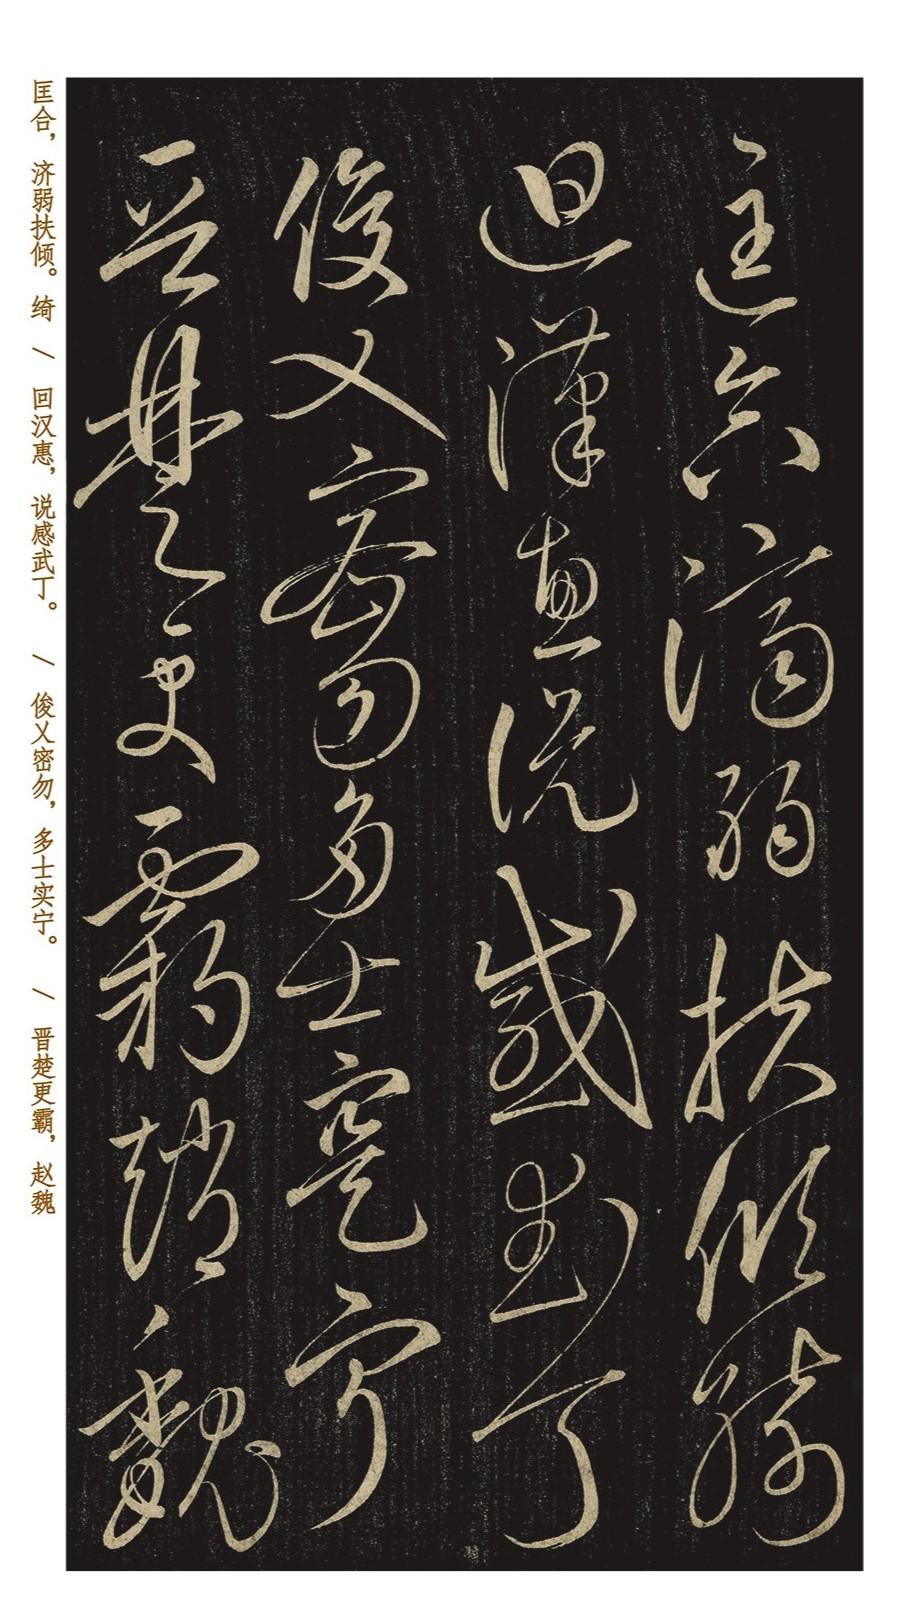 匡合济弱扶倾绮
回汉惠说感武丁
俊乂密勿多士寔宁
晋楚更霸赵魏
匡合，济弱扶倾。绮 / 回汉惠，说感武丁。 / 俊乂密勿，多士实宁。 / 晋楚更霸，赵魏